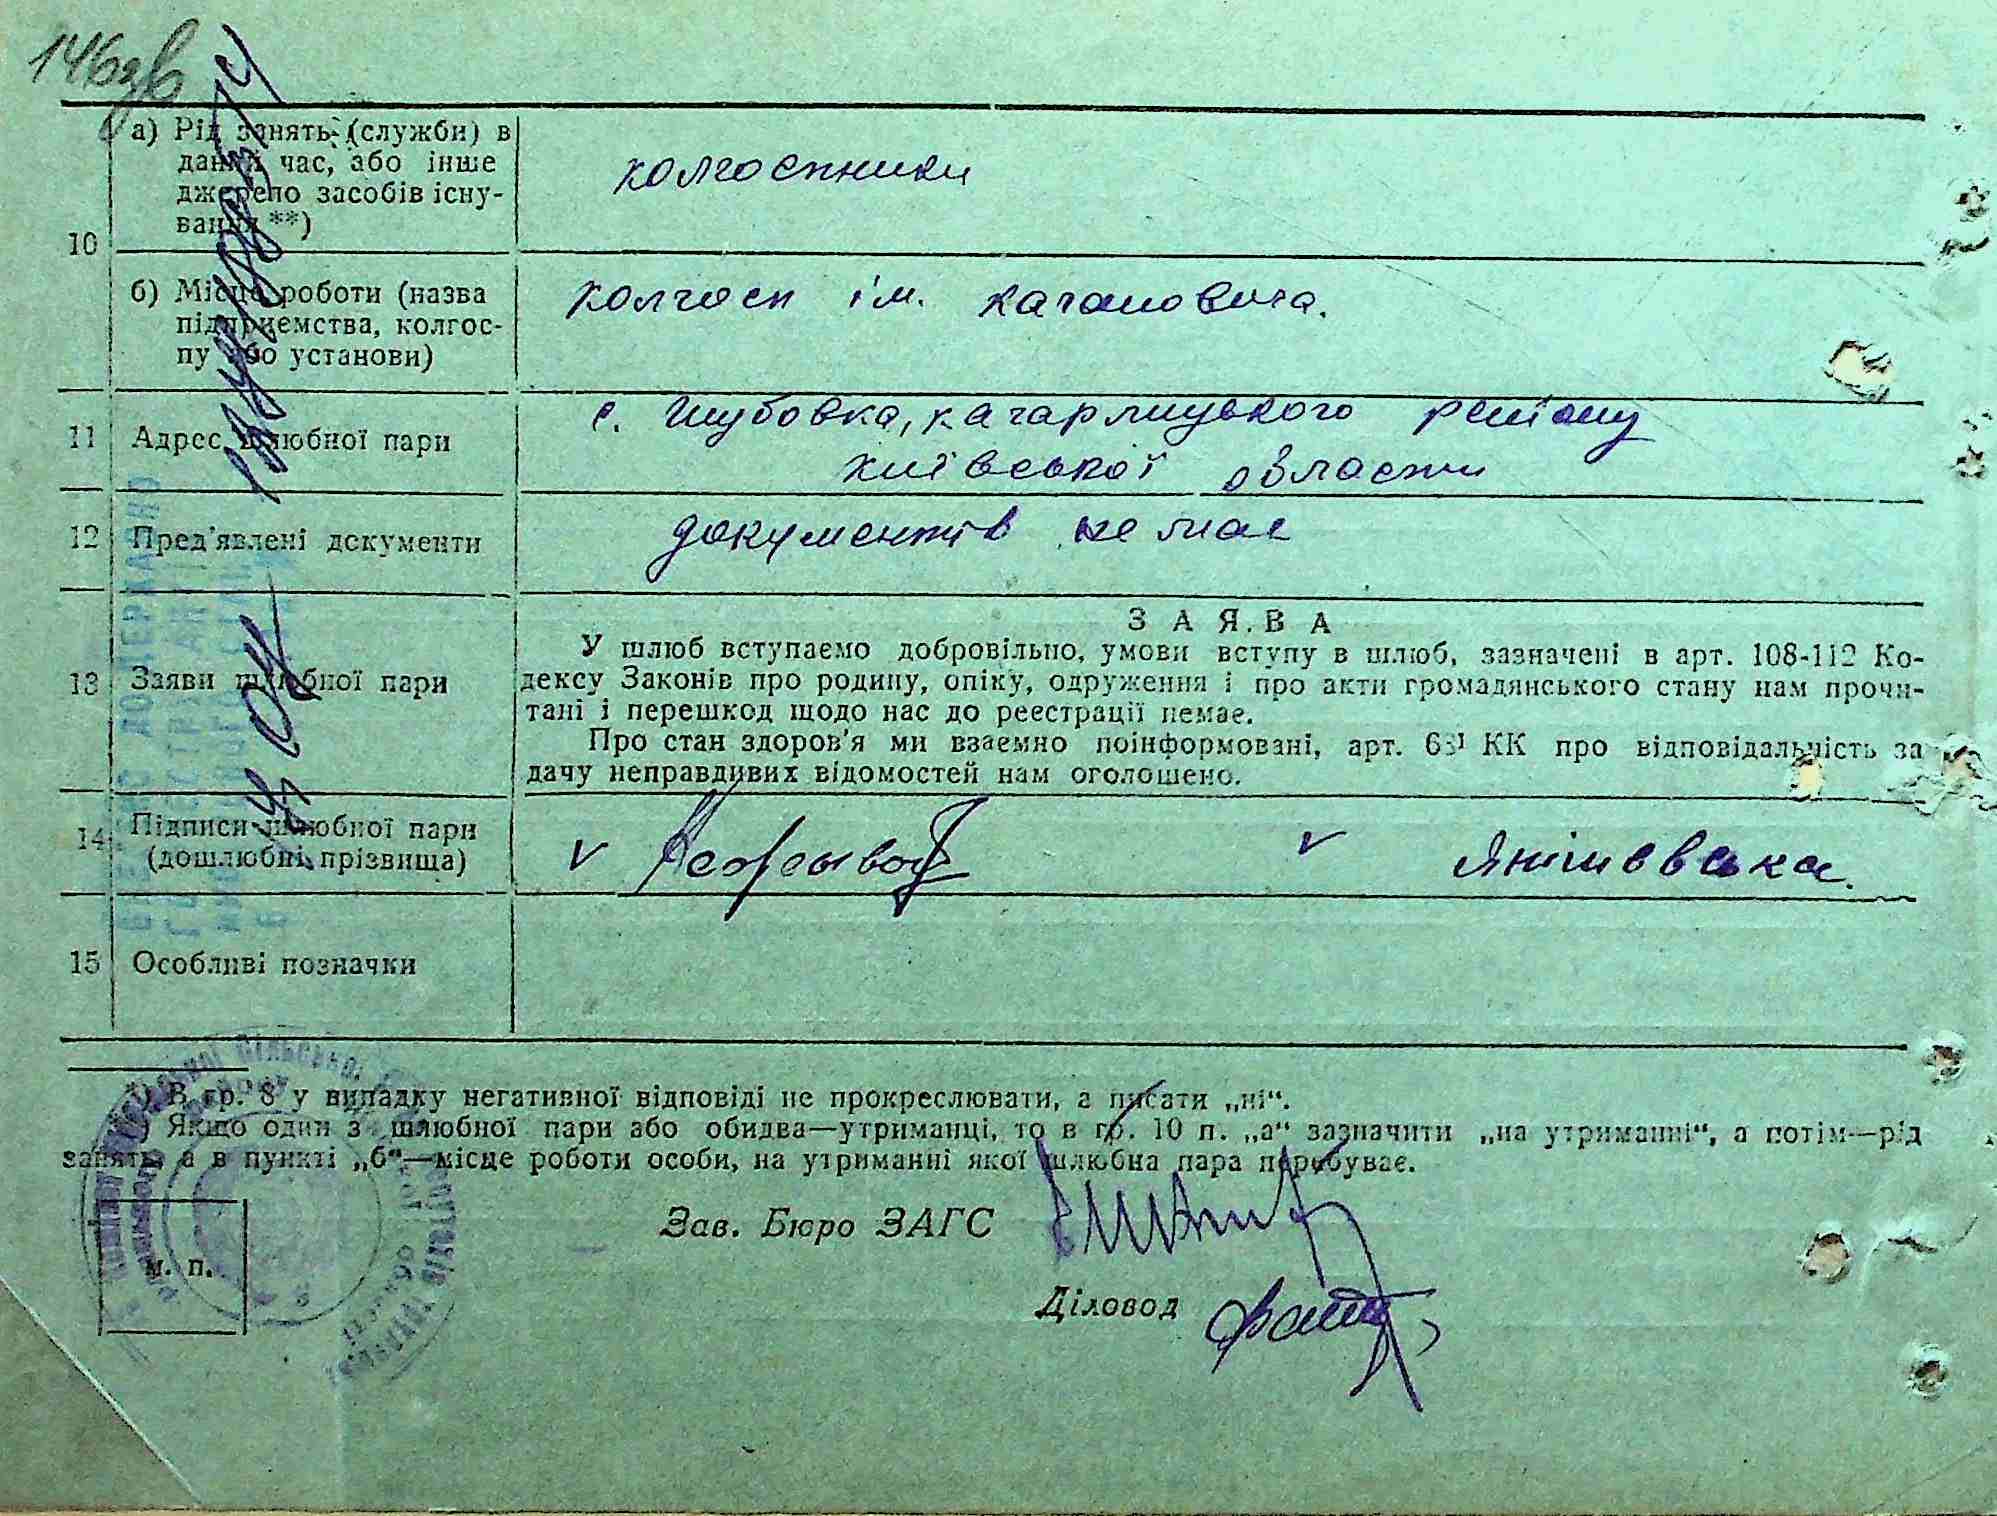 146зв
а) Рід занять (служби) в
даний час, або інше
джерело засобів існу-
вання **)
колгоспники
10
б) Місце роботи (назва
підприємства, колгос-
пу або установи)
колгосп ім. Кагановича.
11
Адрес шлюбної пари
с. Шубовка, Кагарлицького району
Київської области
12
Пред'явлені документи
документів немає
13
Заяви шлюбної пари
ЗАЯВА
У шлюб вступаємо добровільно, умови вступу в шлюб, зазначені в арт. 108-112 Ко-
дексу Законів про родину, опіку, одруження і про акти громадянського стану нам прочи-
тані і перешкод щодо нас до реєстрації немає.
Про стан здоров'я ми взаємно поінформовані, арт. 63¹ КК про відповідальність за
дачу неправдивих відомостей нам оголошено.
14
Підписи шлюбної пари
(дошлюбні прізвища)
V V Янішевська.
15
Особливі позначки
*) В гр. 8 у випадку негативної відповіді не прокреслювати, а писати „ні“.
**) Якщо один з шлюбної пари або обидва—утриманці, то в гр. 10 п. „а“ зазначити „на утриманні“, а потім—рід
занять, а в пункті „б“—місце роботи особи, на утриманні якої шлюбна пара перебуває.
Зав. Бюро ЗАГС
м. п.
Діловод